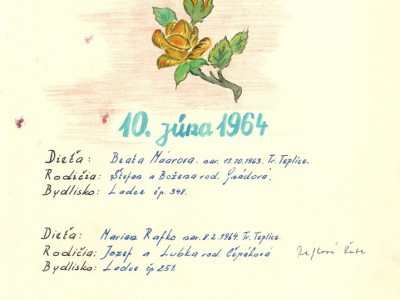 10. júna 1964
Dieťa: Beata Máarova nar. 11.10.1963. Tr. Teplice.
Rodičia: Štefan a Božena rod. Gádorá.
Bydlisko: Ladce čp. 348.
Dieťa: Marian Rafko nar. 8.2.1964. Tr. Teplice.
Rodičia: Jozef a Ľubka rod. Cépáková
Bydlisko: Ladce čp 251.